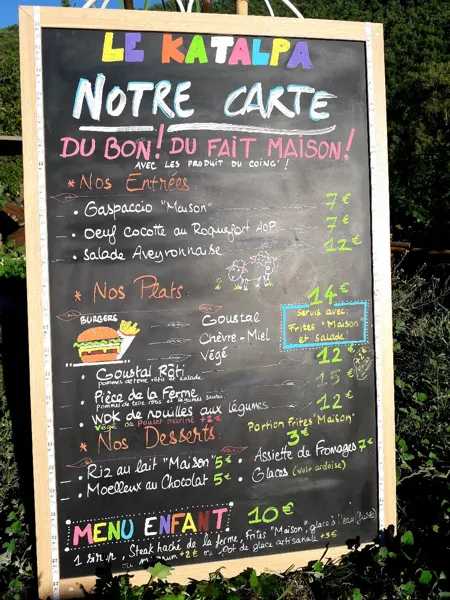 LE KATALPA
NOTRE CARTE
DU BON! DU FAIT MAISON!
AVEC LES PRODUIT DU COING'!
* Nos Entrées
• Gaspaccio "Maison" 7€
• Oeuf cocotte au Roquefort AOP 7€
• Salade Aveyronnaise 12€
* Nos Plats: 14€
BURGERS
Goustal
Chèvre-Miel
Végé
Servis avec:
Frites "Maison"
et salade
• Goustal Rôti 12€
pommes de terre rôtis et salade
• Pièce de la Ferme 15€
pommes de terre rotis et légumes
• Wok de nouilles aux légumes 12€
Végé ou Poulet mariné +2€
* Nos Desserts:
Portion Frites "Maison"
3€
• Riz au lait "Maison" 5€
• Moelleux au Chocolat 5€
• Assiette de Fromages 7€
• Glaces (voir ardoise)
MENU ENFANT 10€
1 sirop, Steak haché de la ferme, Frites "Maison", glace à l'eau
+2€ ou Pot de glace artisanale +3€